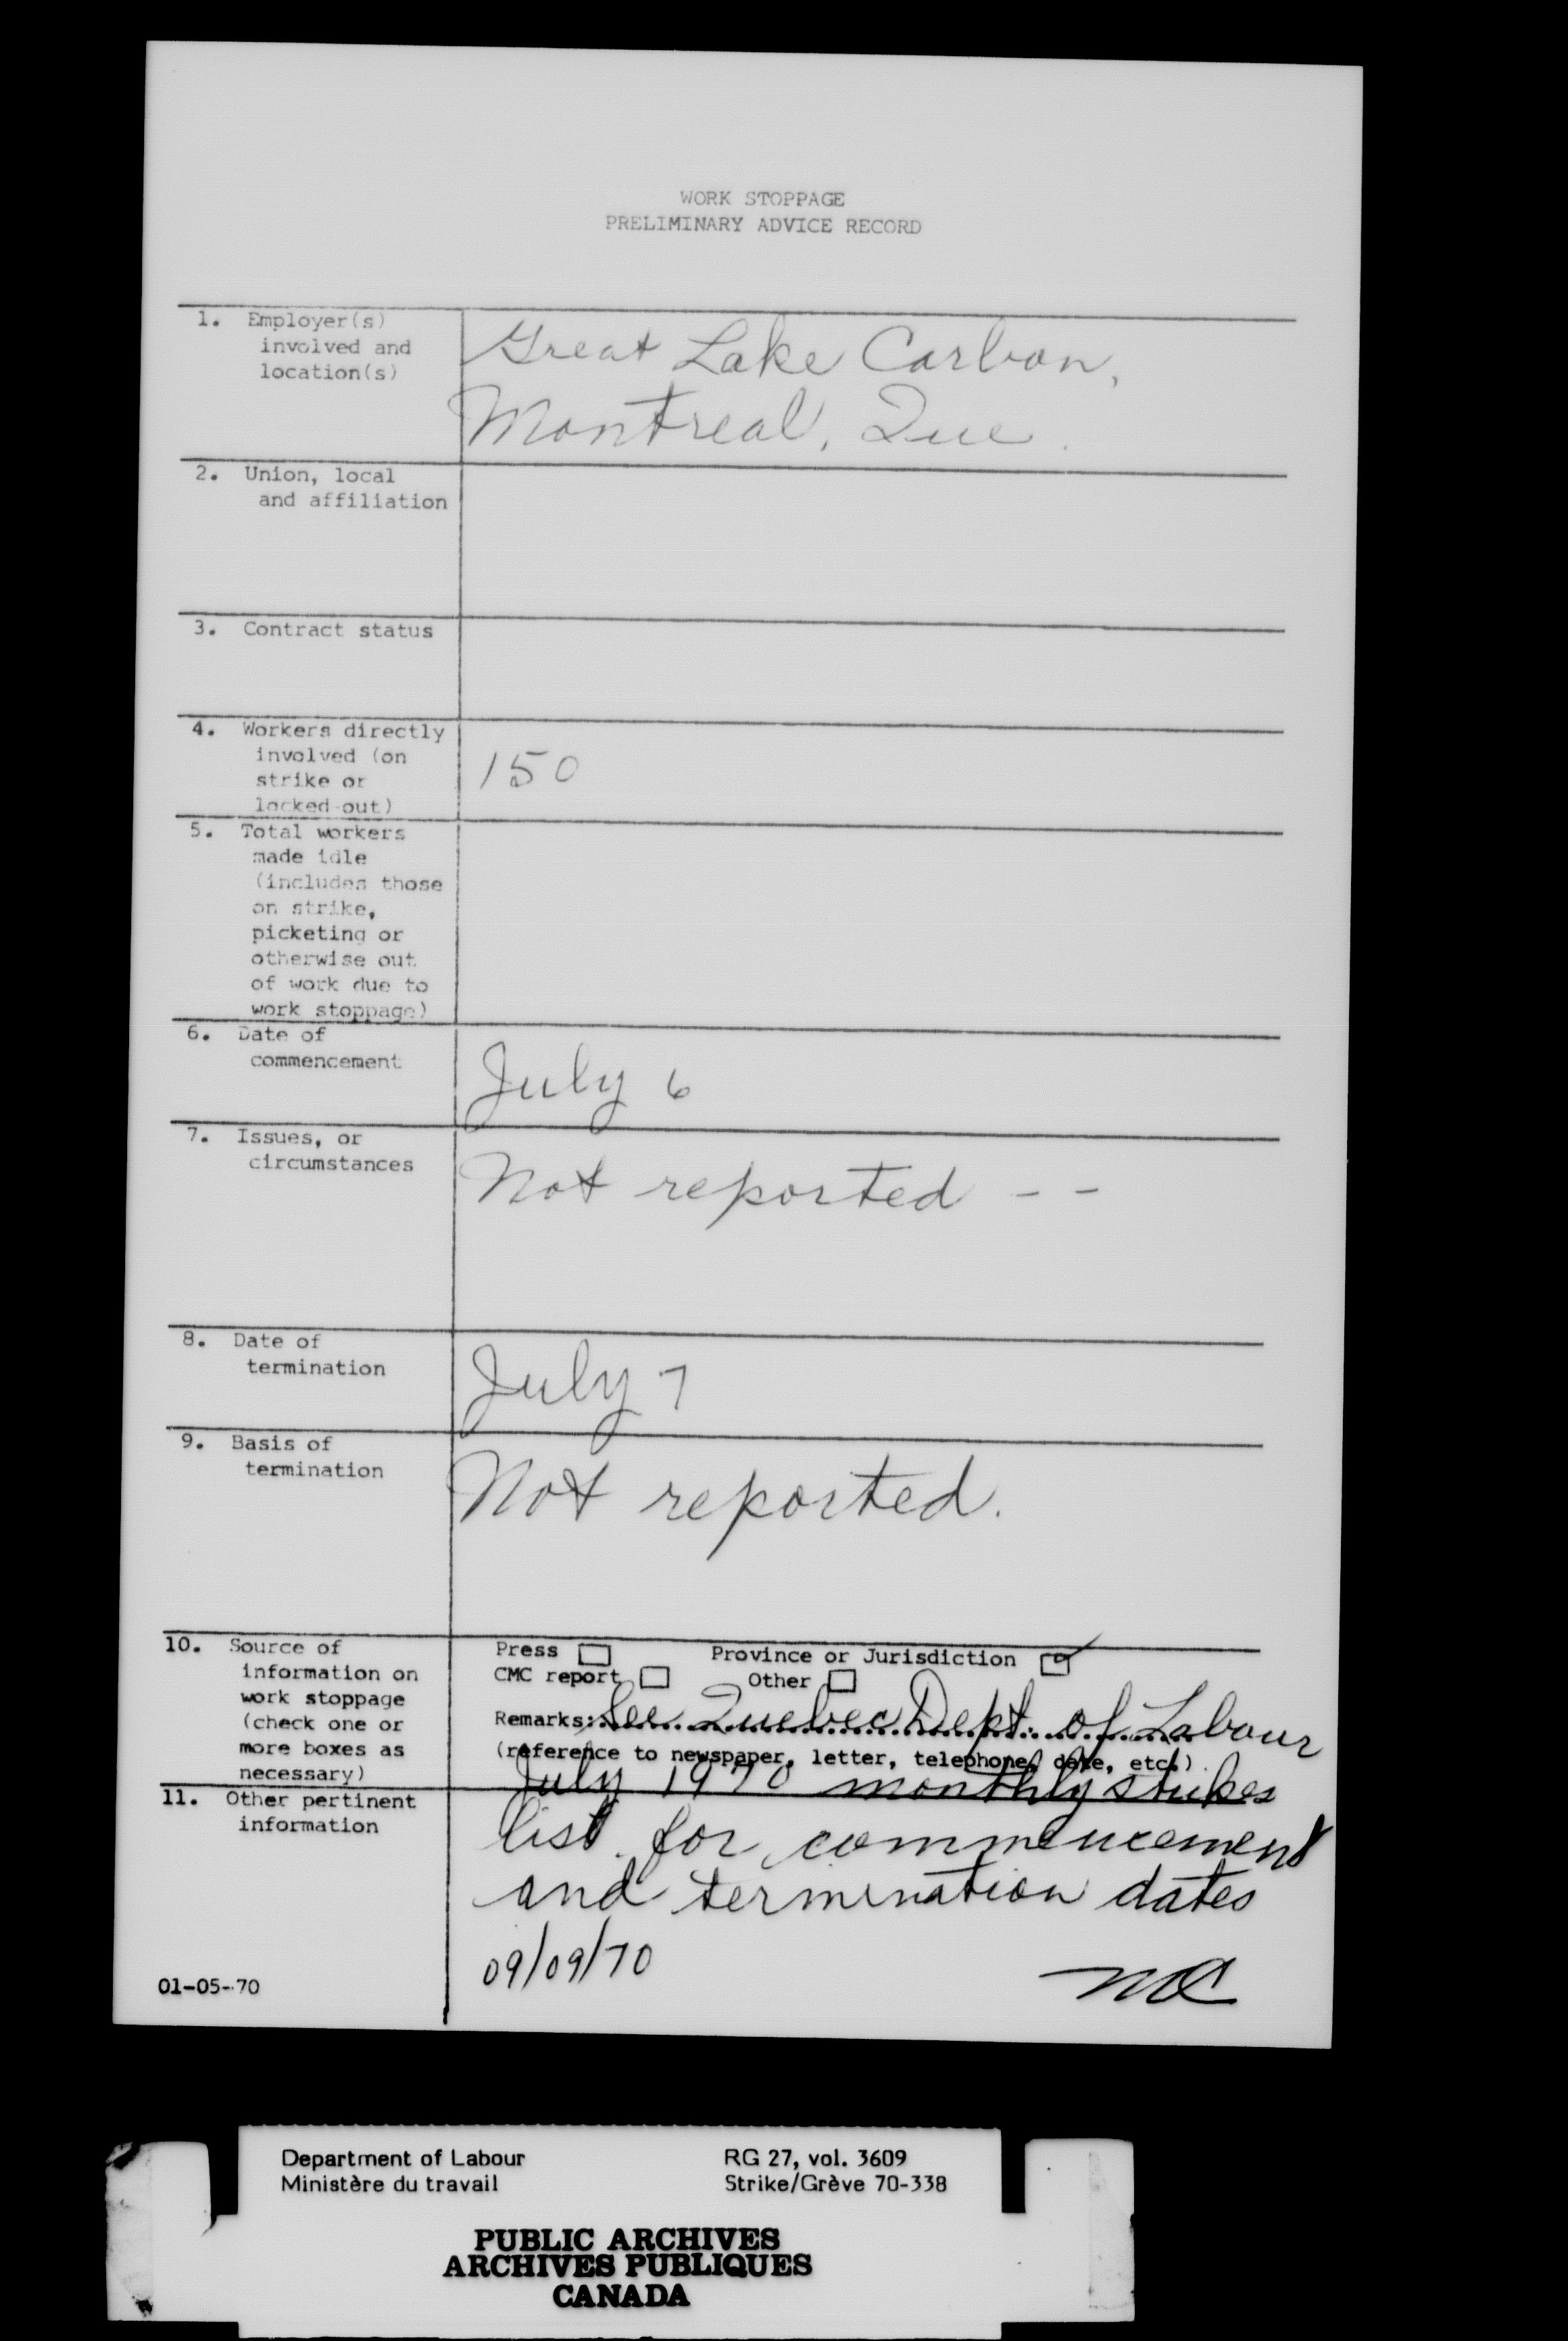 WORK STOPPAGE
PRELIMINARY ADVICE RECORD
1. Employer(s)
involved and
location(s)
Great Lake Carbon,
Montreal, Que.
2. Union, local
and affiliation
3. Contract status
4. Workers directly
involved (on
strike or
locked-out)
150
5. Total workers
made idle
(includes those
on strike,
picketing or
otherwise out
of work due to
work stoppage)
6. Date of
commencement
July 6
7. Issues, or
circumstances
Not reported - -
8. Date of
termination
July 7
9. Basis of
termination
Not reported.
10. Source of
information on
work stoppage
(check one or
more boxes as
necessary)
Press Province or Jurisdiction
CMC report Other
Remarks: See Quebec Dept. of Labour
(reference to newspaper, letter, telephone, date, etc.)
July 1970 monthly strikes
11. Other pertinent
information
list for commencement
and termination dates
09/09/70
01-05-70
Department of Labour
Ministère du travail
RG 27, vol. 3609
Strike/Grève 70-338
PUBLIC ARCHIVES
ARCHIVES PUBLIQUES
CANADA